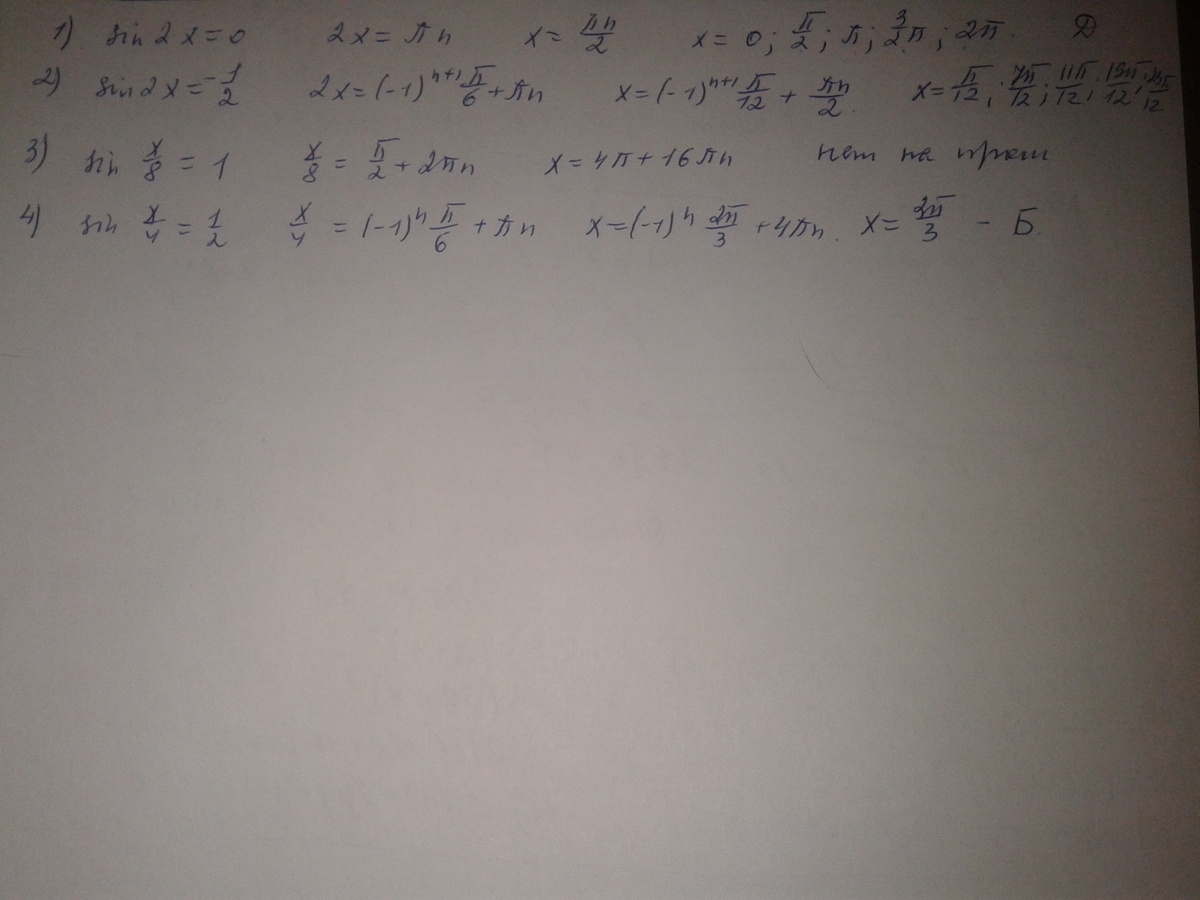 1) sin 2x = 0 2x = πn x = πn/2 x = 0; π/2; π; 3/2 π; 2π. Д
2) sin 2x = -1/2 2x = (-1)^n+1 π/6 + πn x = (-1)^n+1 π/12 + πn/2. x = π/12; 7π/12; 11π/12;
3) sin x/8 = 1 x/8 = π/2 + 2πn x = 4π + 16πn нет на
4) sin x/4 = 1/2 x/4 = (-1)^n π/6 + πn x = (-1)^n 2π/3 + 4πn. x = 2π/3 - Б.